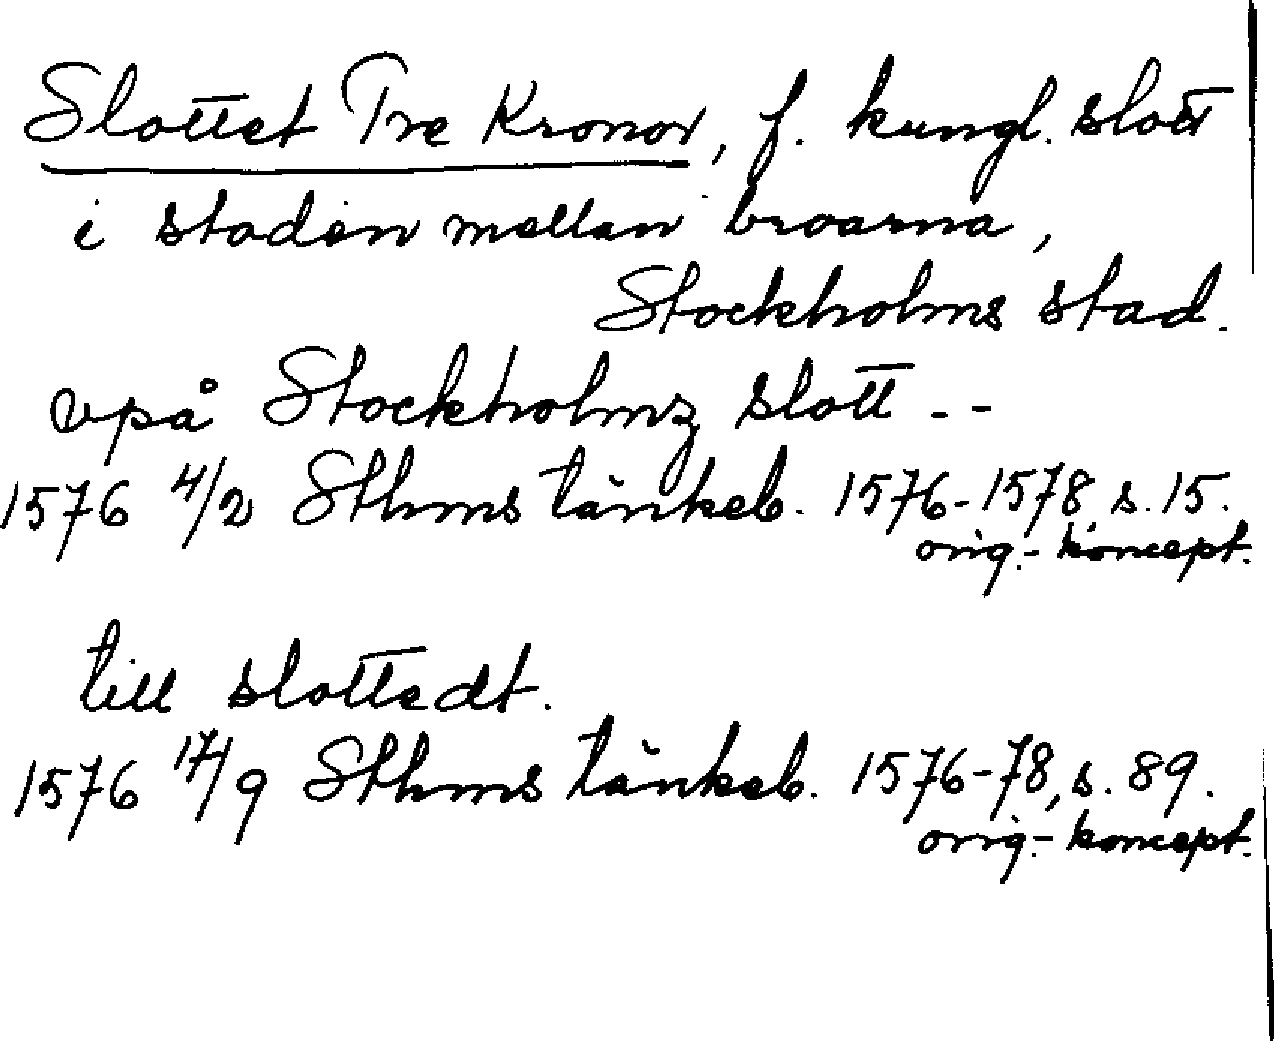 Slottet Tre Kronor, f. kungl. slott
i staden mellan broarna,
Stockholms stad.
vpå Stockholmz slott --
1576 4/2 Sthms tänkeb. 1576-1578 s. 15.
orig.- koncept.
till slottedt.
1576 17/9 Sthms tänkeb. 1576-78, s. 89.
orig.- koncept.